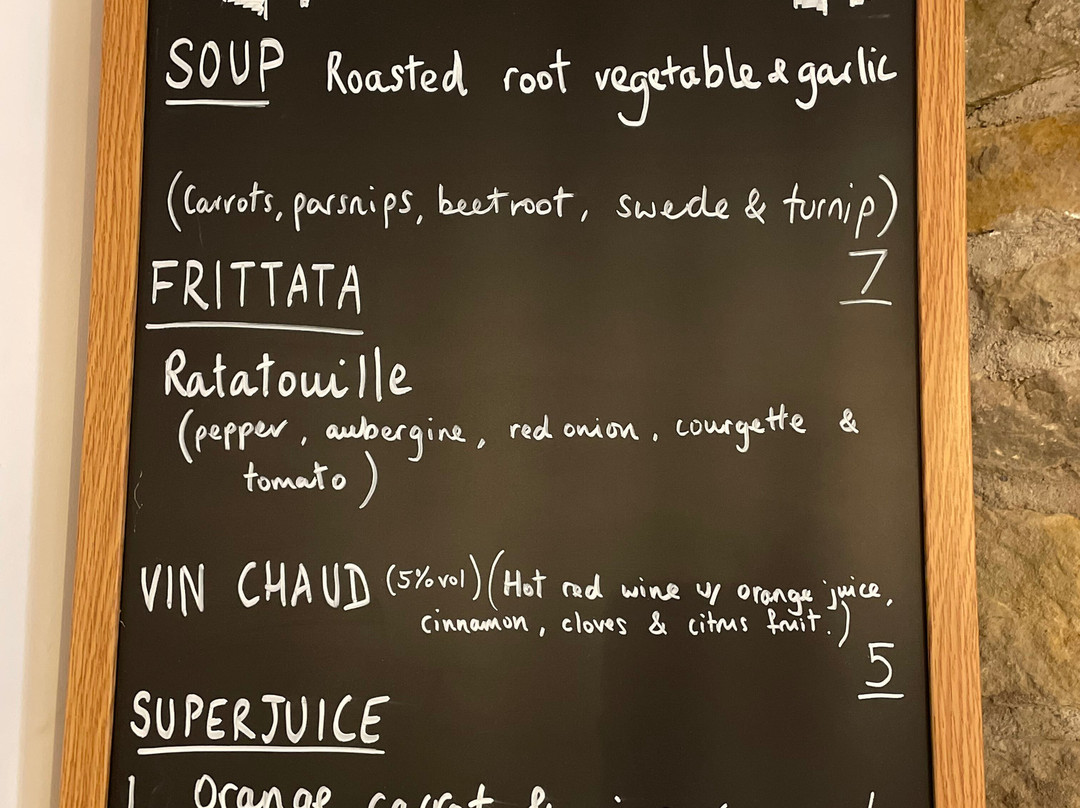 SOUP Roasted root vegetable & garlic
(Carrots, parsnips, beetroot, swede & turnip)
7
FRITTATA
Ratatouille
(pepper, aubergine, red onion, courgette &
tomato)
VIN CHAUD (5%vol) (Hot red wine w/ orange juice,
cinnamon, cloves & citrus fruit.)
5
SUPERJUICE
1 Orange carrot &